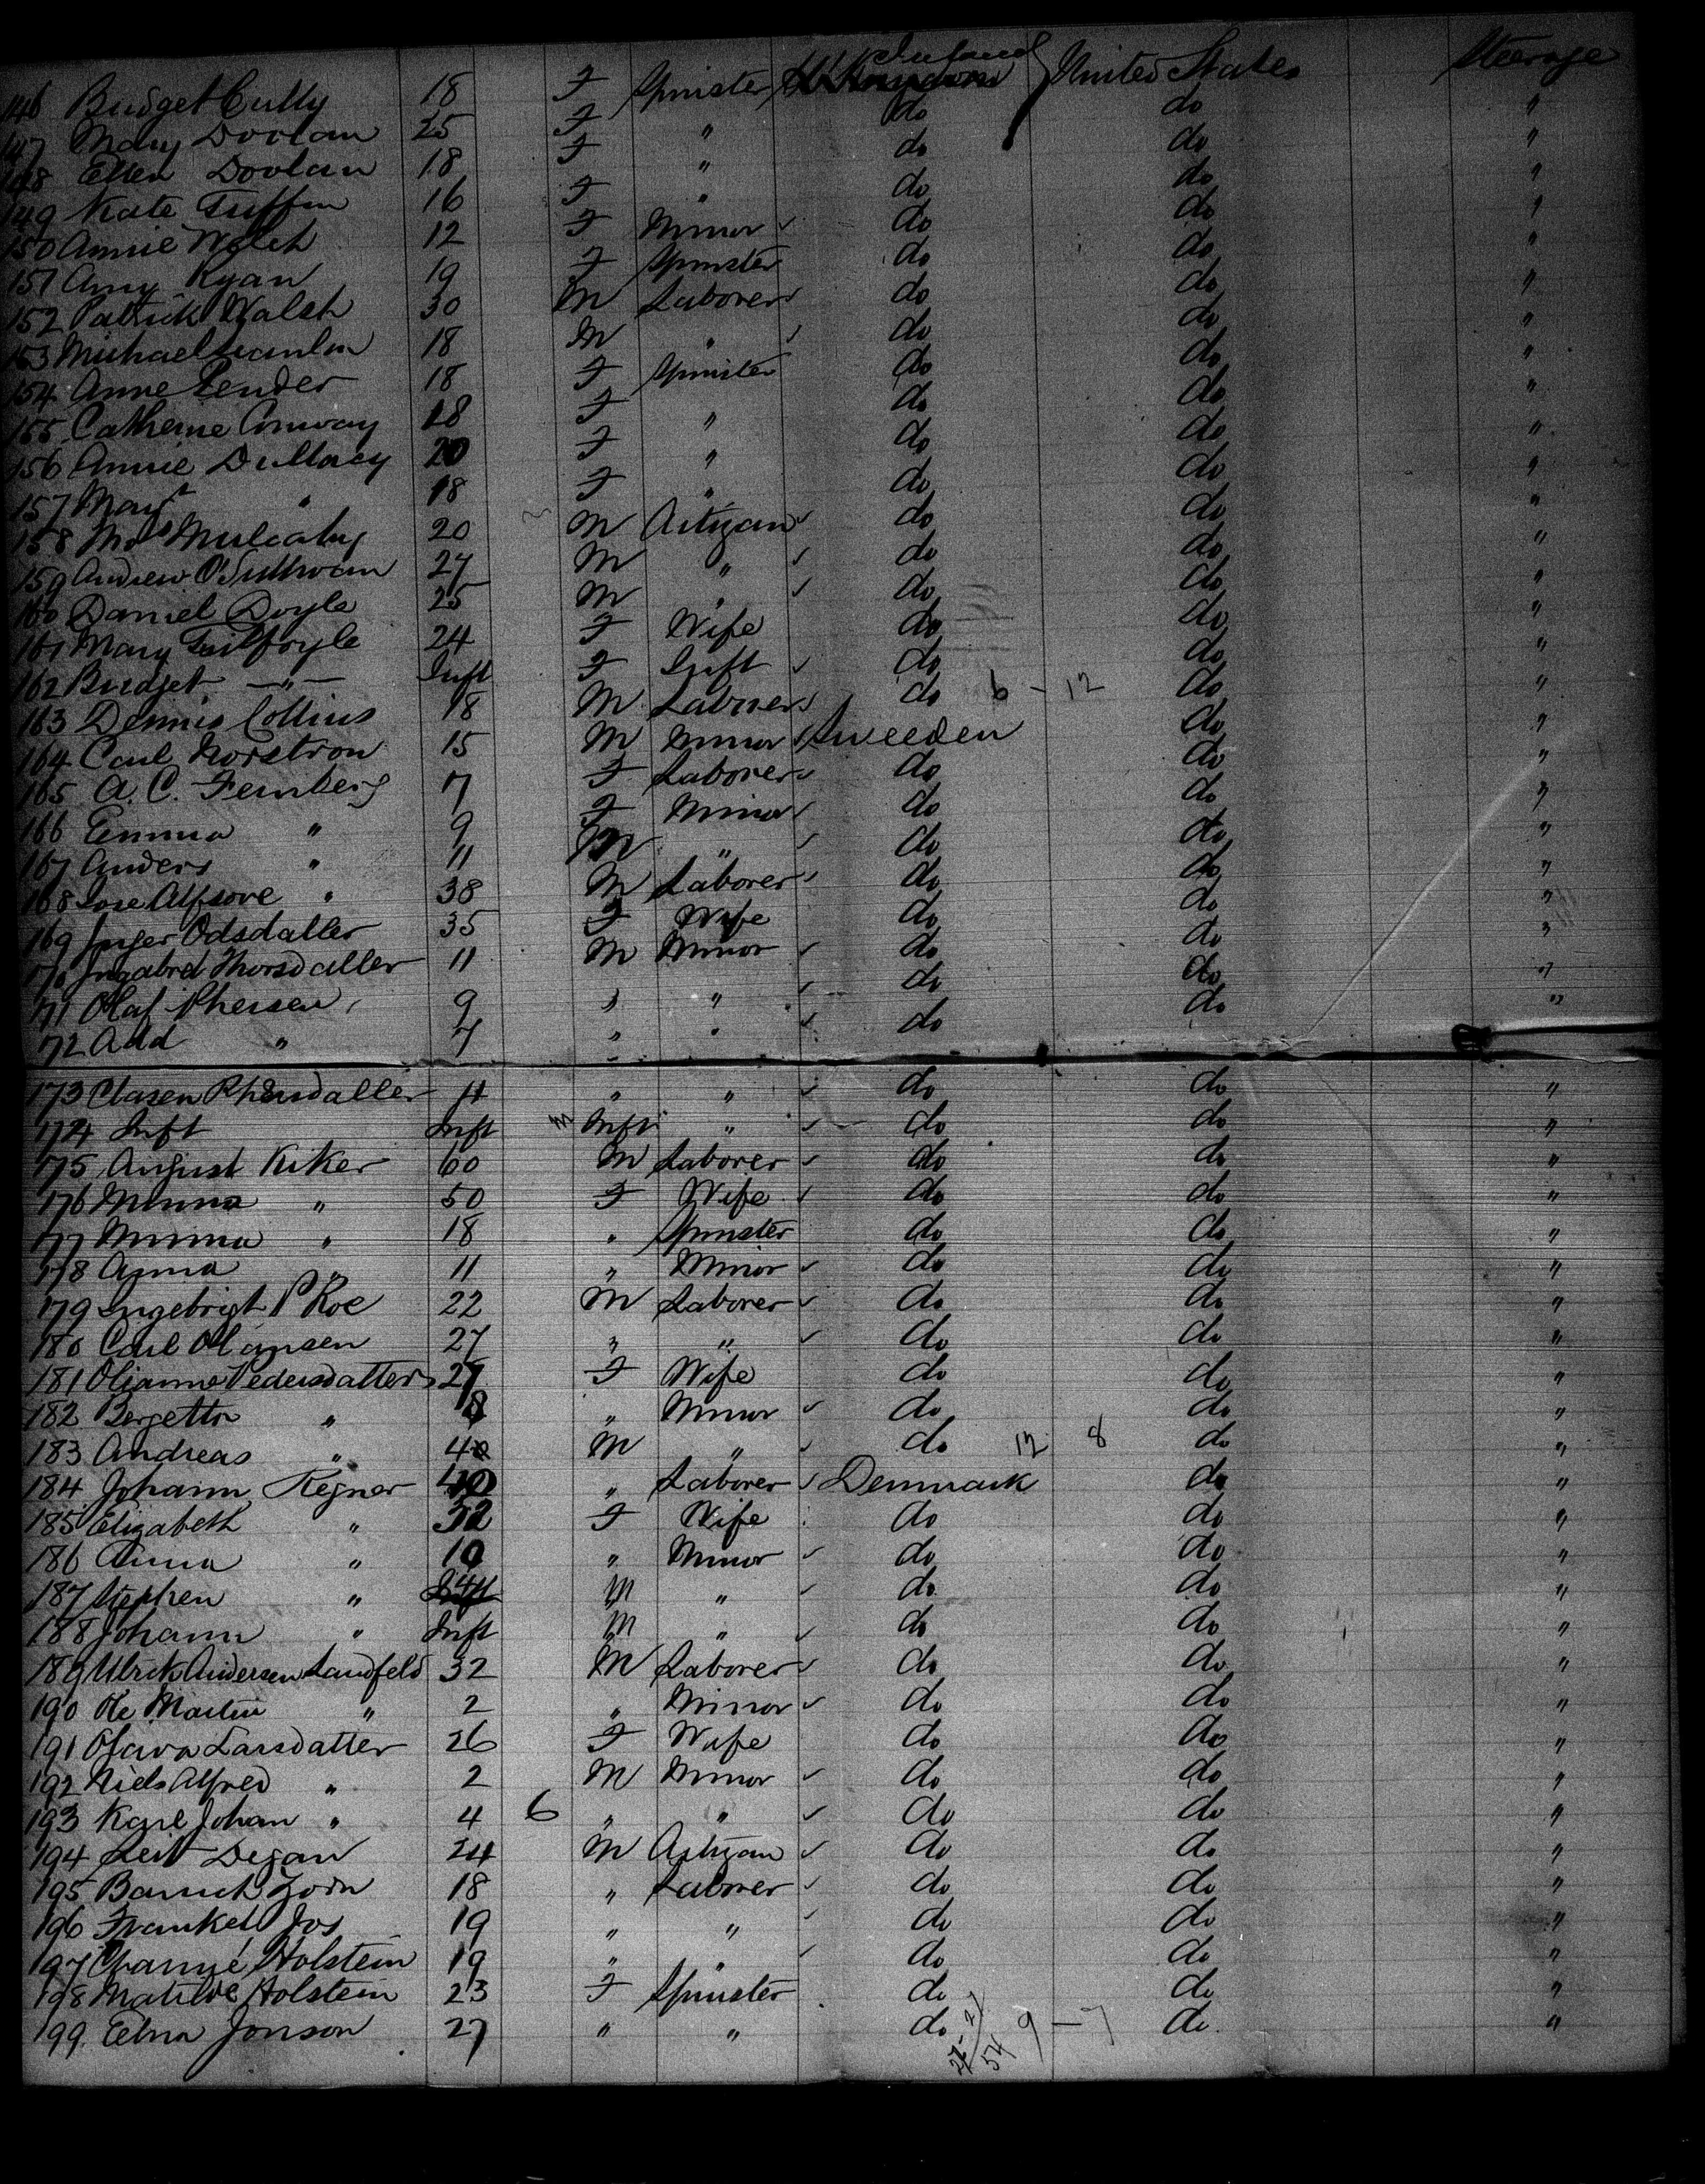 146 Bridget Cully 18 F Spinster Ireland United States Steerage
147 Mary Doolan 25 F " do do "
148 Ellen Doolan 18 F " do do "
149 Kate Tuffin 16 F " do do "
150 Annie Welch 12 F Minor do do "
151 Amy Ryan 19 F Spinster do do "
152 Patrick Walsh 30 M Laborer do do "
153 Michael Scanlon 18 M " do do "
154 Anne Pender 18 F Spinster do do "
155 Catherine Conway 18 F " do do "
156 Annie Dullacy 20 F " do do "
157 Mary " 18 F " do do "
158 Mulcahy 20 M Artizan do do "
159 Andrew O'Sullivan 27 M " do do "
160 Daniel Doyle 25 M " do do "
161 Mary Guilfoyle 24 F Wife do do "
162 Bridget -"- Inft F Inft do do "
163 Dennis Collins 18 M Laborer do 6 - 12 do "
164 Carl Norstrom 15 M Minor Sweeden do "
165 A. C. Fernberg 7 F Laborer do do "
166 Emma " 9 F Minor do do "
167 Anders " 11 M " do do "
168 " 38 M Laborer do do "
169 Inger Odsdatter 35 F Wife do do "
170 Ingabret Thorsdatter 11 M Minor do do "
171 Olaf 9 " " do do "
172 Add " 7 " " do do "
173 Clasen 11 " " do do "
174 Inft Inft M Inft " do do "
175 August Kiker 60 M Laborer do do "
176 Minna " 50 F Wife do do "
177 Minna " 18 " Spinster do do "
178 Anna " 11 " Minor do do "
179 Ingebrigt P Roe 22 M Laborer do do "
180 Carl Hansen 27 " " do do "
181 Olianne Pedersdatter 27 F Wife do do "
182 Bergetta " " Minor do do "
183 Andreas " M " do 12 8 do "
184 Johann Regner 40 " Laborer Denmark do "
185 Elizabeth " 32 F Wife do do "
186 Anna " 10 " Minor do do "
187 Stephen " M " do do "
188 Johann " Inft M " do do "
189 Ulrick Andersen Landfeld 32 M Laborer do do "
190 Ole Martin " 2 " Minor do do "
191 Olava Larsdatter 26 F Wife do do "
192 Niels Alfred " 2 M Minor do do "
193 Karl Johan " 4 6 " " do do "
194 Leib Degan 24 M Artizan do do "
195 Baruch Zorn 18 " Laborer do do "
196 Frankel Jos 19 " " do do "
197 Holstein 19 " " do do "
198 Matilde Holstein 23 F Spinster do do "
199 Elna Jonson 27 " " do 9 - 7 do "
54